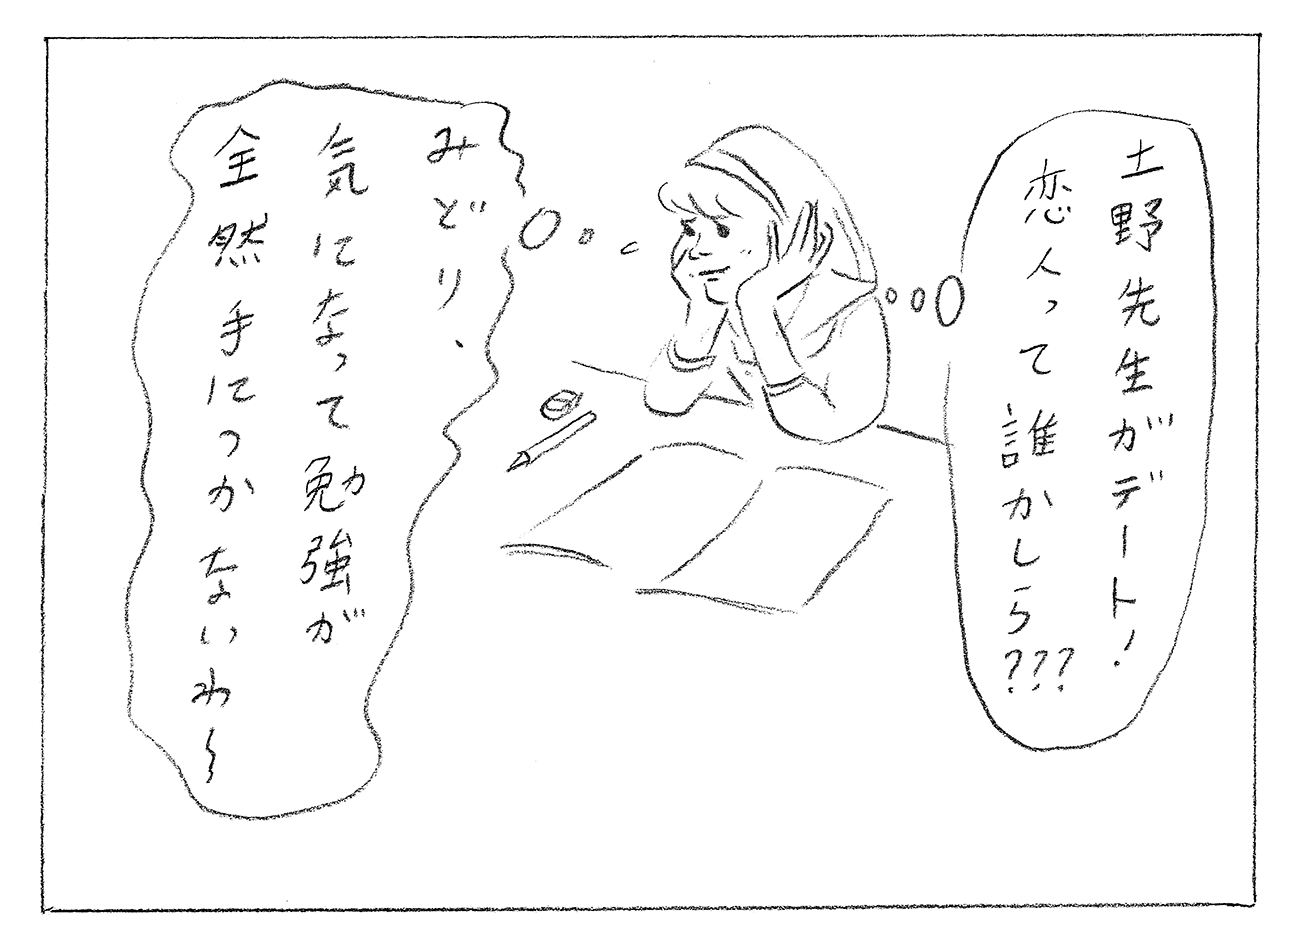 土野先生がデート!
恋人って誰かしら???
みどり、
気になって勉強が
全然手につかないわ〜